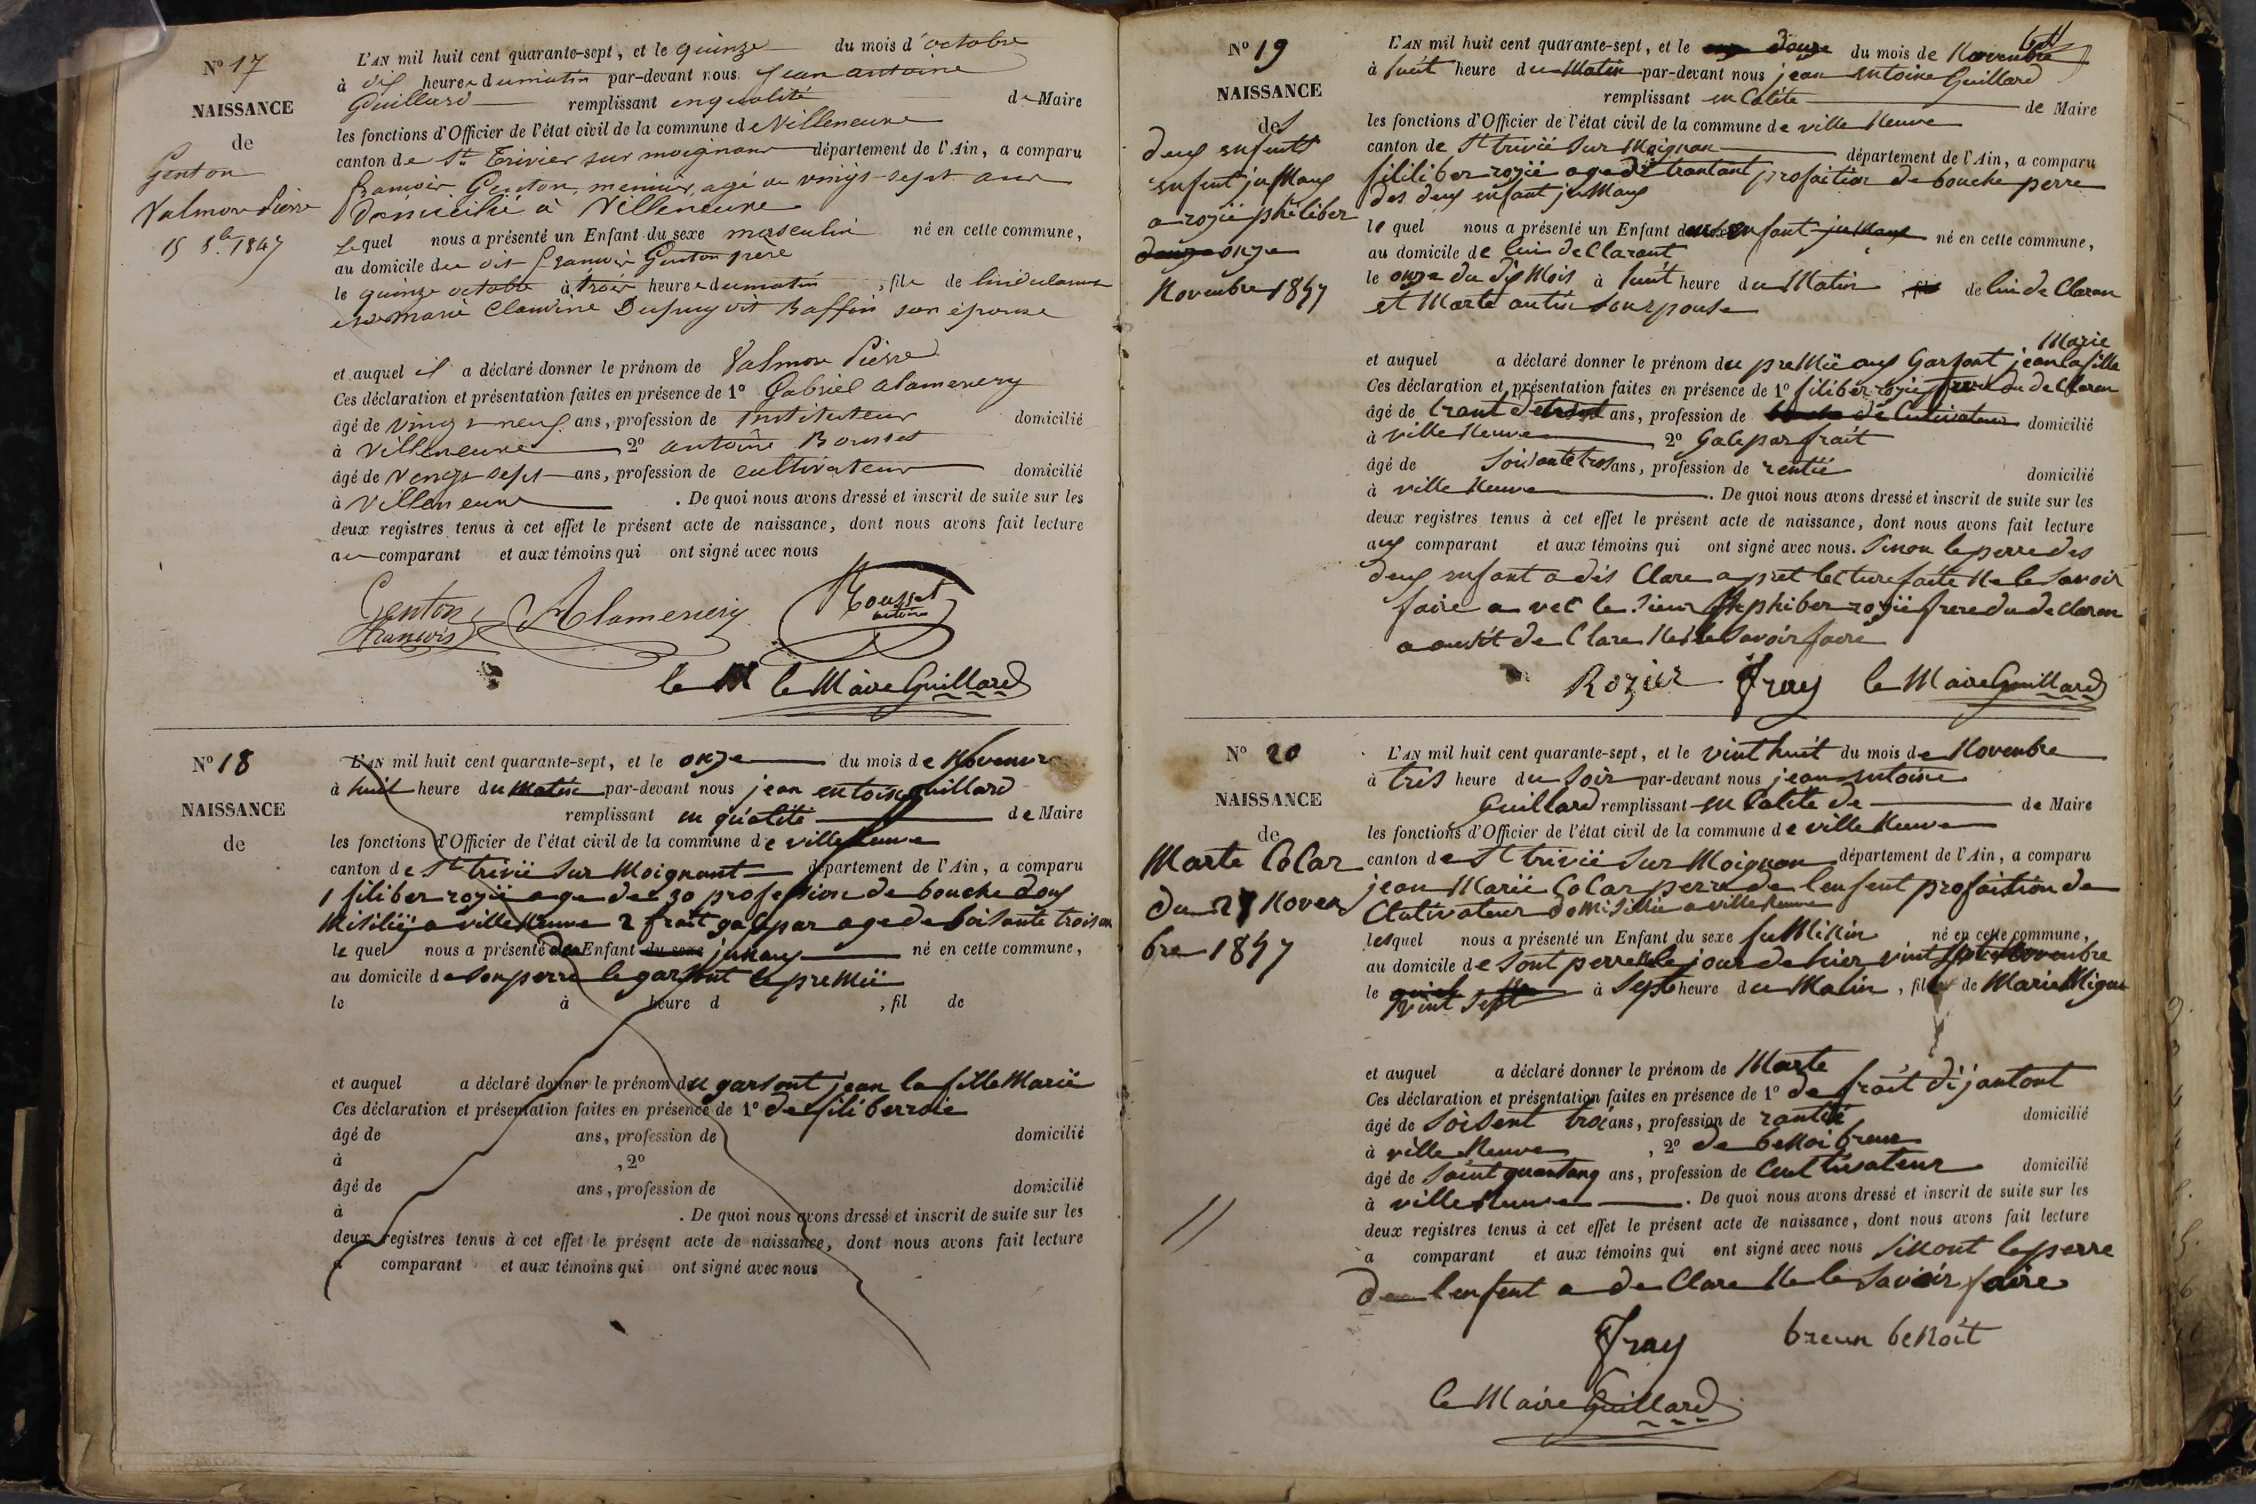 N° 17
NAISSANCE
de
Genton
Valmon Pierre
15 8bre 1847
L'AN mil huit cent quarante-sept, et le quinze du mois d'octobre
à dix heures du matin par-devant nous Jean antoine
Guillard remplissant en qualité de Maire
les fonctions d'Officier de l'état civil de la commune de Villeneuve
canton de St Trivier sur moignans département de l'Ain, a comparu
François Genton, menuier, agé de vingt-sept ans
domicilié à Villeneuve
Lequel nous a présenté un Enfant du sexe masculin né en cette commune,
au domicile du dit François Genton père
le quinze octobre à trois heures du matin, fils de lui déclarant
et de marie Claudine Dupuy dit Baffin son épouse
et auquel il a déclaré donner le prénom de Valmon Pierre
Ces déclaration et présentation faites en présence de 1° Gabriel alamercery
âgé de vingt-neuf ans, profession de Instituteur domicilié
à Villeneuve 2° antoine Bousset
âgé de vingt-sept ans, profession de cultivateur domicilié
à Villeneuve . De quoi nous avons dressé et inscrit de suite sur les
deux registres tenus à cet effet le présent acte de naissance, dont nous avons fait lecture
au comparant et aux témoins qui ont signé avec nous
Genton françois Alamercery Bousset antoine
le M le Maire Guillard
N° 18
NAISSANCE
de
L'AN mil huit cent quarante-sept, et le onze du mois de Novembre
à huit heure du Matin par-devant nous jean entoine guillard
remplissant en qualité de Maire
les fonctions d'Officier de l'état civil de la commune de ville Neuve
canton de St trivié sur Moignant département de l'Ain, a comparu
1 filiber rozié age de 30 profession de bouche doug
Misilié a ville Neuve 2 frait gaspar age de soisante trois an
le quel nous a présenté des Enfant du sexe jumaux né en cette commune,
au domicile de son perre le garsont le premié
le à heure d , fil de
et auquel a déclaré donner le prénom du garsont jean la fille Marié
Ces déclaration et présentation faites en présence de 1° de filiber rozié
âgé de ans, profession de domicilié
à , 2°
âgé de ans, profession de domicilié
à . De quoi nous avons dressé et inscrit de suite sur les
deux registres tenus à cet effet le présent acte de naissance, dont nous avons fait lecture
a comparant et aux témoins qui ont signé avec nous
N° 19
NAISSANCE
des
deux enfentt
enfent jumaux
a rozié philiber
douze onze
Novembre 1847
L'AN mil huit cent quarante-sept, et le onze douze du mois de Novembre
à huit heure du Matin par-devant nous jean entoine Guillard
remplissant en Calite de Maire
les fonctions d'Officier de l'état civil de la commune de ville Neuve
canton de St trivié sur Moignan département de l'Ain, a comparu
filiber rozié age de trantant profaition de bouche perre
des deux enfant jumaux
le quel nous a présenté un Enfant deux enfant jumaux né en cette commune,
au domicile de lui de Clarant
le onze du dis Mois à huit heure du Matin de lui de Claran
et Marte antin son epouse
et auquel a déclaré donner le prénom du premié aux Garsont jean la fille Marie
Ces déclaration et présentation faites en présence de 1° filiber rozié frere du de Claran
âgé de trant ans, profession de Cultivateur domicilié
à ville Neuve 2° Gaspar frait
âgé de soisante tros ans, profession de rentié domicilié
à ville Neuve . De quoi nous avons dressé et inscrit de suite sur les
deux registres tenus à cet effet le présent acte de naissance, dont nous avons fait lecture
aux comparant et aux témoins qui ont signé avec nous. Sinon le perre des
deux enfant a dés Clare apret lecture faite Ne le savoir
faire a vec le sieur philiber rozié frere du de claran
a ausit de Clare Ne le savoir faire
Rozier Fray le Maire Guillard
N° 20
NAISSANCE
de
Marte Colar
du 27 Novem
bre 1847
L'AN mil huit cent quarante-sept, et le vint huit du mois de Novembre
à tris heure du soir par-devant nous jean entoine
Guillard remplissant en Calité de de Maire
les fonctions d'Officier de l'état civil de la commune de ville Neuve
canton de St trivié sur Moignan département de l'Ain, a comparu
jean Marié Colar perre de l'enfent profaition de
Cultivateur domisilié a ville Neuve
lesquel nous a présenté un Enfant du sexe fuminin né en cette commune,
au domicile de sont perre le jour de hier vint sept Novembre
le vint sept à sept heure du Matin, fille de Marie Migne
et auquel a déclaré donner le prénom de Marte
Ces déclaration et présentation faites en présence de 1° de frait dijantont
âgé de soisent trois ans, profession de rantié domicilié
à ville Neuve , 2° de benoi breun
âgé de ans, profession de Cultivateur domicilié
à ville Neuve . De quoi nous avons dressé et inscrit de suite sur les
deux registres tenus à cet effet le présent acte de naissance, dont nous avons fait lecture
a comparant et aux témoins qui ont signé avec nous sinont le perre
de l'enfent a de Clare Ne le savoir faire
Fray breun benoit
le Maire Guillard